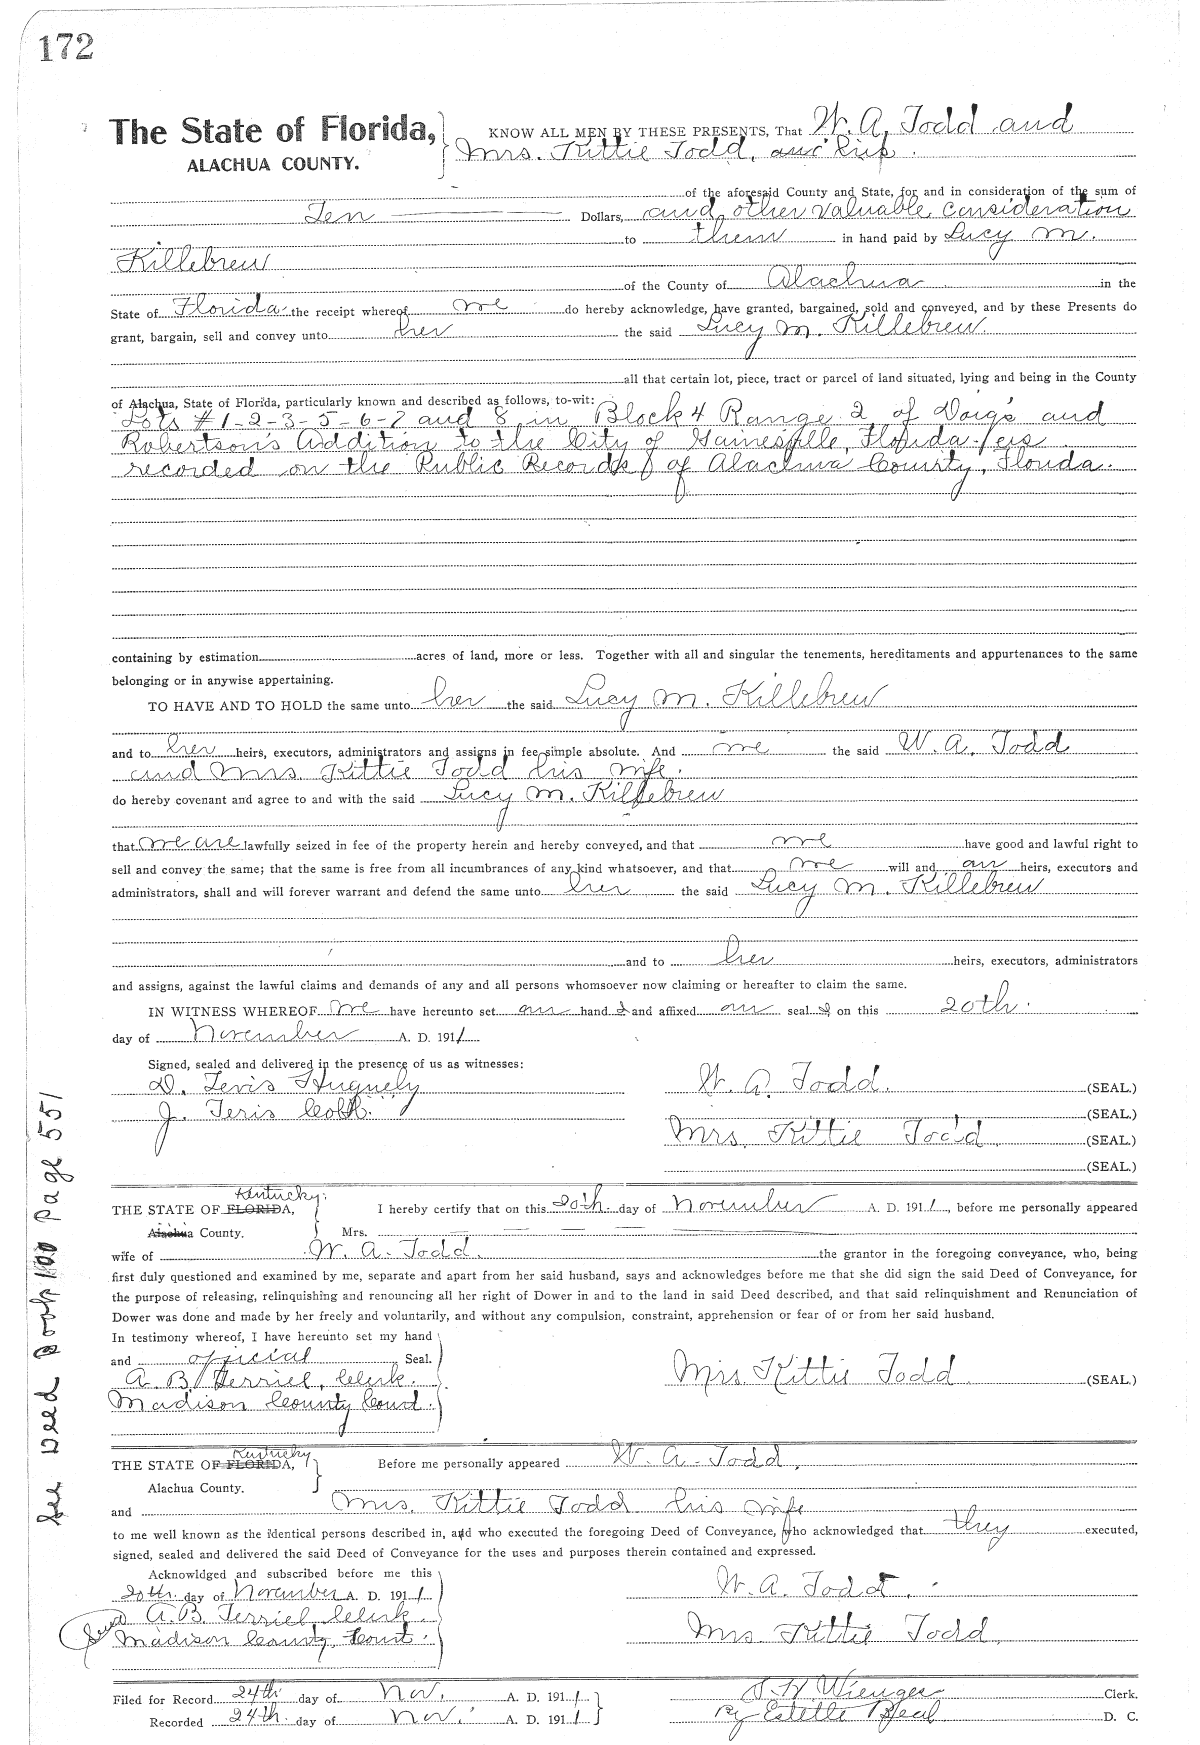 172
The State of Florida,
ALACHUA COUNTY.
KNOW ALL MEN BY THESE PRESENTS, That W. A. Todd and
Mrs. Kittie Todd,
of the aforesaid County and State, for and in consideration of the sum of
Ten Dollars, and other valuable consideration
to them in hand paid by Lucy M.
Killebrew
of the County of Alachua in the
State of Florida the receipt whereof we do hereby acknowledge, have granted, bargained, sold and conveyed, and by these Presents do
grant, bargain, sell and convey unto her the said Lucy M. Killebrew
all that certain lot, piece, tract or parcel of land situated, lying and being in the County
of Alachua, State of Florida, particularly known and described as follows, to-wit:
Lots #1-2-3-5-6-7 and 8 in Block 4 Range 2 of Doig's and
Robertson's Addition to the City of Gainesville, Florida, as
recorded on the Public Records of Alachua County, Florida.
containing by estimation acres of land, more or less. Together with all and singular the tenements, hereditaments and appurtenances to the same
belonging or in anywise appertaining.
TO HAVE AND TO HOLD the same unto her the said Lucy M. Killebrew
and to her heirs, executors, administrators and assigns in fee simple absolute. And we the said W. A. Todd
and Mrs. Kittie Todd his wife.
do hereby covenant and agree to and with the said Lucy M. Killebrew
that we are lawfully seized in fee of the property herein and hereby conveyed, and that we have good and lawful right to
sell and convey the same; that the same is free from all incumbrances of any kind whatsoever, and that we will and our heirs, executors and
administrators, shall and will forever warrant and defend the same unto her the said Lucy M. Killebrew
and to her heirs, executors, administrators
and assigns, against the lawful claims and demands of any and all persons whomsoever now claiming or hereafter to claim the same.
IN WITNESS WHEREOF we have hereunto set our hand s and affixed our seal s on this 20th.
day of November A. D. 1911.
Signed, sealed and delivered in the presence of us as witnesses:
D. Tevis Huguely
W. A. Todd. (SEAL.)
J. Tevis Cobb.
(SEAL.)
Mrs. Kittie Todd (SEAL.)
(SEAL.)
Kentucky.
THE STATE OF FLORIDA, I hereby certify that on this 20th. day of November A. D. 1911, before me personally appeared
Alachua County. Mrs.
wife of W. A. Todd. the grantor in the foregoing conveyance, who, being
first duly questioned and examined by me, separate and apart from her said husband, says and acknowledges before me that she did sign the said Deed of Conveyance, for
the purpose of releasing, relinquishing and renouncing all her right of Dower in and to the land in said Deed described, and that said relinquishment and Renunciation of
Dower was done and made by her freely and voluntarily, and without any compulsion, constraint, apprehension or fear of or from her said husband.
In testimony whereof, I have hereunto set my hand
and official Seal.
A. B. Terriel, Clerk. Mrs Kittie Todd (SEAL.)
Madison County Court.
Kentucky
THE STATE OF FLORIDA, Before me personally appeared W. A. Todd,
Alachua County.
and Mrs. Kittie Todd his wife
to me well known as the identical persons described in, and who executed the foregoing Deed of Conveyance, who acknowledged that they executed,
signed, sealed and delivered the said Deed of Conveyance for the uses and purposes therein contained and expressed.
Acknowldged and subscribed before me this
20th. day of November A. D. 1911. W. A. Todd.
A. B. Terriel Clerk.
Seal Madison County Court. Mrs. Kittie Todd
Filed for Record 24th day of Nov. A. D. 1911. S. H. Wienges Clerk.
Recorded 24th. day of Nov. A. D. 1911. By Estelle Beal D. C.
See Deed Book 100 Page 551